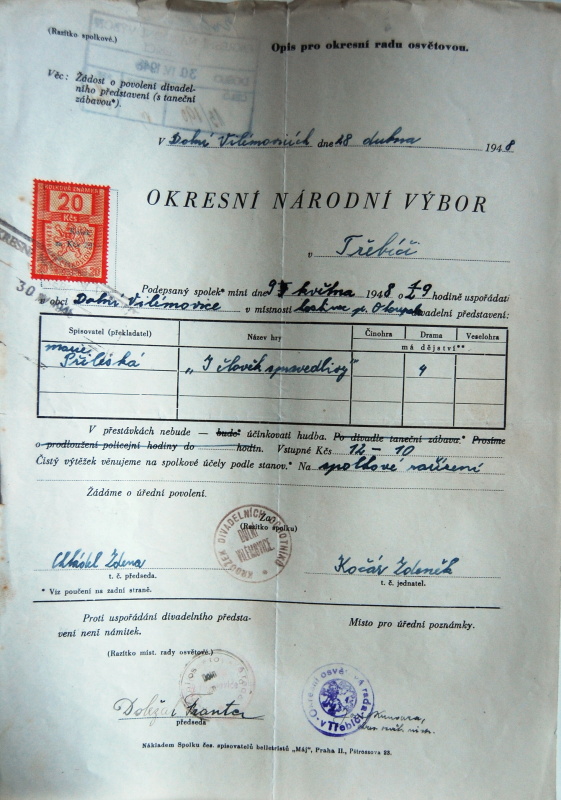 (Razítko spolkové.)
Opis pro okresní radu osvětovou.
Věc: Žádost o povolení divadel-
ního představení (s taneční
zábavou*).
30 IV 1948
V Dolní Vilémovicích dne 28 dubna 1948
KOLKOVÁ ZNÁMKA
20
Kčs
20
OKRESNÍ NÁRODNÍ VÝBOR
v Třebíči
Podepsaný spolek* míní dne 9 května 1948 o 19 hodině uspořádati
v obci Dolní Vilémovice v místnosti p. divadelní představení:
Spisovatel (překladatel) Název hry Činohra Drama Veselohra
má dějství**
Marie
Přileská „I člověk spravedlivý" 4
V přestávkách nebude — bude* účinkovati hudba. Po divadle taneční zábava.* Prosíme
o prodloužení policejní hodiny do hodin. Vstupné Kčs 12 – 10
Čistý výtěžek věnujeme na spolkové účely podle stanov.* Na spolkové zařízení
Žádáme o úřední povolení.
Za:
(Razítko spolku)
KROUŽEK DIVADELNÍCH OCHOTNÍKŮ
DOLNÍ
VILÉMOVICE
Chládel Zdena
Kočár Zdeněk
t. č. předseda. t. č. jednatel.
* Viz poučení na zadní straně.
Proti uspořádání divadelního předsta-
vení není námitek.
Místo pro úřední poznámky.
(Razítko míst. rady osvětové.)
Okresní osvětová rada v Třebíči
Doležal
předseda
Nákladem Spolku čes. spisovatelů beletristů „Máj", Praha II., Pštrossova 23.